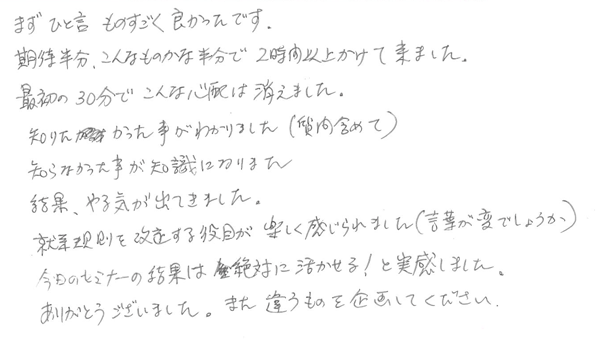 まずひと言 ものすごく良かったです.
期待半分、こんなものかな半分で 2時間以上かけて来ました.
最初の30分でこんな心配は消えました。
知りたかった事がわかりました(質問含めて)
知らなかった事が知識になりました
結果、やる気が出てきました。
就業規則を改定する役目が 楽しく感じられました(言葉が変でしょうか)
今日のセミナーの結果は 絶対に活かせる!と実感しました。
ありがとうございました。また違うものを企画してください.